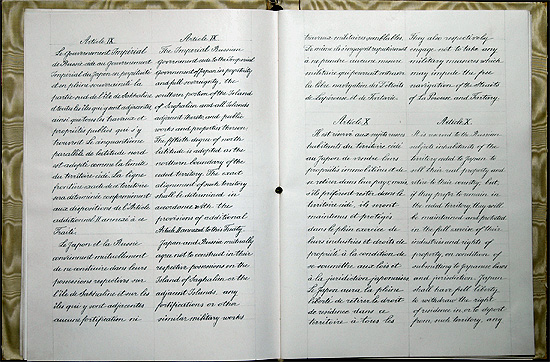 Article IX.
Le Gouvernement Impérial
de Russie cède au Gouvernement
Impérial du Japon en perpétuité
et en pleine souveraineté la
partie sud de l'île de Sakhaline
et toutes les îles qui y sont adjacentes
ainsi que tous les travaux et
propriétés publics qui s'y
trouvent. Le cinquantième
parallèle de latitude nord
est adopté comme la limite
du territoire cédé. La ligne
frontière exacte de ce territoire
sera déterminée conformément
aux dispositions de l'Article
additionnel II annexé à ce
Traité.
Le Japon et la Russie
conviennent mutuellement
de ne construire dans leurs
possessions respectives sur
l'île de Sakhaline et sur les
îles qui y sont adjacentes
aucune fortification ni
Article IX.
The Imperial Russian
Government cede to the Imperial
Government of Japan in perpetuity
and full sovereignty, the
southern portion of the Island
of Saghalien and all Islands
adjacent thereto, and public
works and properties thereon.
The fiftieth degree of north
latitude is adopted as the
northern boundary of the
ceded territory. The exact
alignment of such territory
shall be determined in
accordance with the
provisions of additional
Article II annexed to this Treaty.
Japan and Russia mutually
agree not to construct in their
respective possessions on the
Island of Saghalien or the
adjacent Islands, any
fortifications or other
similar military works
travaux militaires semblables.
Ils
à ne prendre aucune mesure
militaire qui pourrait entraver
la libre navigation des Détroits
de Lapérouse et de Tartarie.
Article X
Il est réservé aux sujets russes
habitants du territoire cédé
au Japon de vendre leurs
propriétés immobilières et de
se retirer dans leur pays; mais
s'ils préfèrent rester dans le
territoire cédé, ils seront
maintenus et protégés
dans le plein exercice de
leurs industries et droits de
propriété, à la condition de
se soumettre aux lois et
à la juridiction japonaises.
Le Japon aura la pleine
liberté de retirer le droit
de résidence dans ce
territoire à tous les
They also respectively
engage not to take any
military measures which
may impede the free
navigation of the Straits
of La Perouse and Tartary.
Article X.
It is reserved to the Russian
subjects inhabitants of the
territory ceded to Japan to
sell their real property and
retire to their country; but,
if they prefer to remain in
the ceded territory, they will
be maintained and protected
in the full exercise of their
industries and rights of
property, on condition of
submitting to Japanese laws
and jurisdiction. Japan
shall have full liberty
to withdraw the right
of residence in, or to deport
from such territory, any